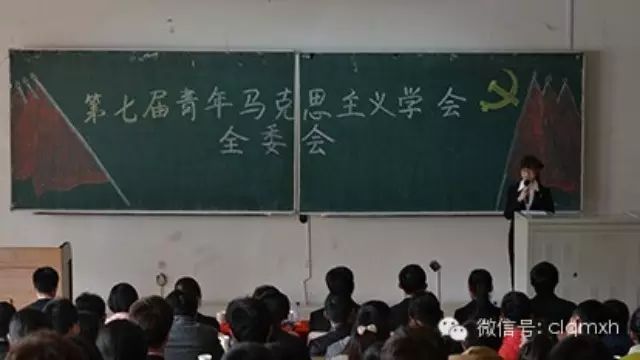 第七届青年马克思主义学会
全委会
微信号: clqmxh